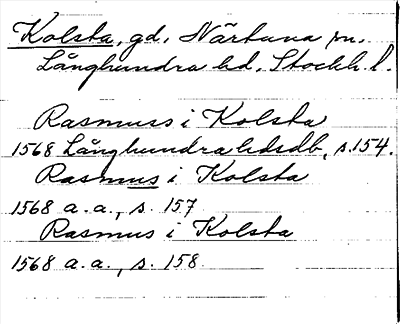 Kolsta, gd, Närtuna sn.
Långhundra hd. Stockh. l.
Rasmuss i Kolsta
1568 Långhundra hdsdb, s. 154.
Rasmus i Kolsta
1568 a. a., s. 157
Rasmus i Kolsta
1568 a. a., s. 158